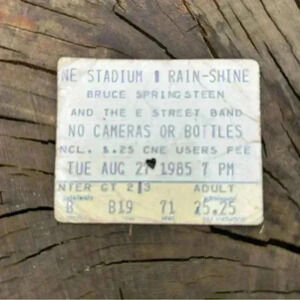 NE STADIUM RAIN-SHINE
BRUCE SPRINGSTEEN
AND THE E STREET BAND
NO CAMERAS OR BOTTLES
INCL. 1.25 CNE USERS FEE
TUE AUG 27 1985 7 PM
NTER GT 2 3 ADULT
B 819 71 25.25